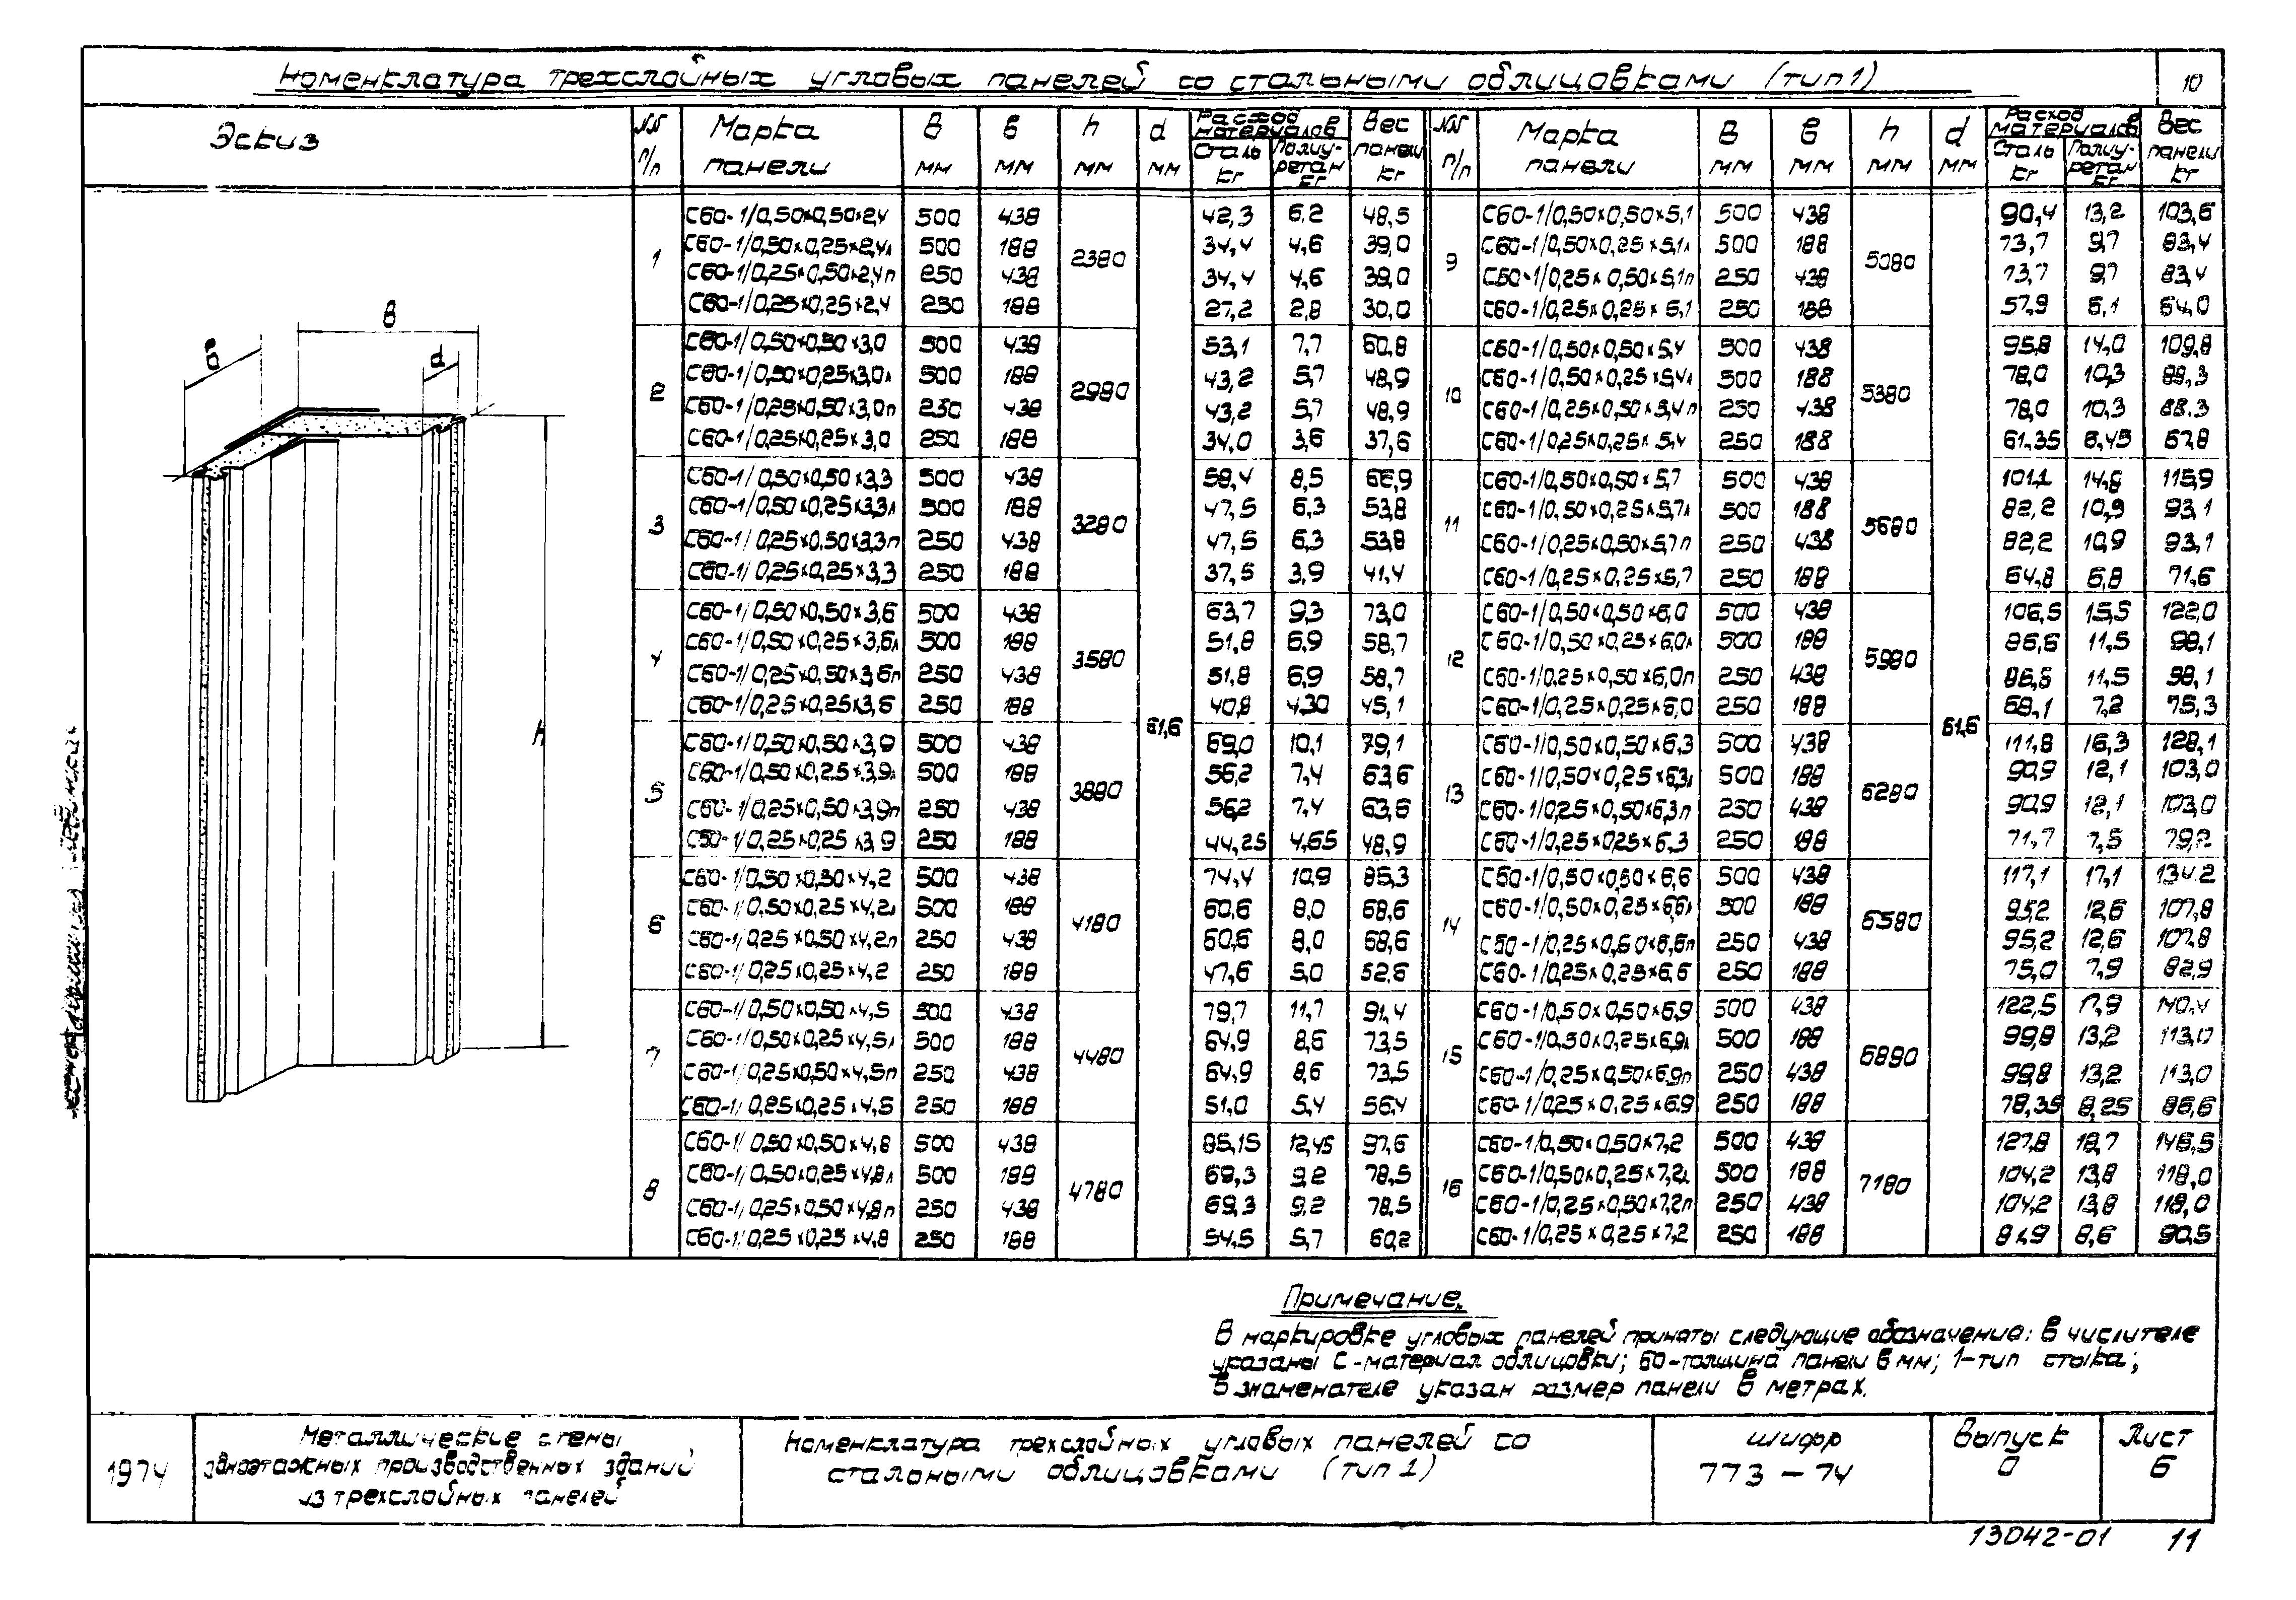 Номенклатура трехслойных угловых панелей со стальными облицовками (тип 1)
10
Эскиз
NN п/п Марка панели B мм в мм h мм d мм Расход материалов Сталь кг Полиуретан кг Вес панели кг
NN п/п Марка панели B мм в мм h мм d мм Расход материалов Сталь кг Полиуретан кг Вес панели кг
в B d h
61,6
61,6
1 2380
С60-1/0,50×0,50×2,4 500 438 42,3 6,2 48,5
С60-1/0,50×0,25×2,4л 500 188 34,4 4,6 39,0
С60-1/0,25×0,50×2,4п 250 438 34,4 4,6 39,0
С60-1/0,25×0,25×2,4 250 188 27,2 2,8 30,0
2 2980
С60-1/0,50×0,50×3,0 500 438 53,1 7,7 60,8
С60-1/0,50×0,25×3,0л 500 188 43,2 5,7 48,9
С60-1/0,25×0,50×3,0п 250 438 43,2 5,7 48,9
С60-1/0,25×0,25×3,0 250 188 34,0 3,6 37,6
3 3280
С60-1/0,50×0,50×3,3 500 438 58,4 8,5 66,9
С60-1/0,50×0,25×3,3л 500 188 47,5 6,3 53,8
С60-1/0,25×0,50×3,3п 250 438 47,5 6,3 53,8
С60-1/0,25×0,25×3,3 250 188 37,5 3,9 41,4
4 3580
С60-1/0,50×0,50×3,6 500 438 63,7 9,3 73,0
С60-1/0,50×0,25×3,6л 500 188 51,8 6,9 58,7
С60-1/0,25×0,50×3,6п 250 438 51,8 6,9 58,7
С60-1/0,25×0,25×3,6 250 188 40,8 4,30 45,1
5 3880
С60-1/0,50×0,50×3,9 500 438 69,0 10,1 79,1
С60-1/0,50×0,25×3,9л 500 188 56,2 7,4 63,6
С60-1/0,25×0,50×3,9п 250 438 56,2 7,4 63,6
С60-1/0,25×0,25×3,9 250 188 44,25 4,65 48,9
6 4180
С60-1/0,50×0,50×4,2 500 438 74,4 10,9 85,3
С60-1/0,50×0,25×4,2л 500 188 60,6 8,0 68,6
С60-1/0,25×0,50×4,2п 250 438 60,6 8,0 68,6
С60-1/0,25×0,25×4,2 250 188 47,6 5,0 52,6
7 4480
С60-1/0,50×0,50×4,5 500 438 79,7 11,7 91,4
С60-1/0,50×0,25×4,5л 500 188 64,9 8,6 73,5
С60-1/0,25×0,50×4,5п 250 438 64,9 8,6 73,5
С60-1/0,25×0,25×4,5 250 188 51,0 5,4 56,4
8 4780
С60-1/0,50×0,50×4,8 500 438 85,15 12,45 97,6
С60-1/0,50×0,25×4,8л 500 188 69,3 9,2 78,5
С60-1/0,25×0,50×4,8п 250 438 69,3 9,2 78,5
С60-1/0,25×0,25×4,8 250 188 54,5 5,7 60,2
9 5080
С60-1/0,50×0,50×5,1 500 438 90,4 13,2 103,6
С60-1/0,50×0,25×5,1л 500 188 73,7 9,7 83,4
С60-1/0,25×0,50×5,1п 250 438 73,7 9,7 83,4
С60-1/0,25×0,25×5,1 250 188 57,9 6,1 64,0
10 5380
С60-1/0,50×0,50×5,4 500 438 95,8 14,0 109,8
С60-1/0,50×0,25×5,4л 500 188 78,0 10,3 88,3
С60-1/0,25×0,50×5,4п 250 438 78,0 10,3 88,3
С60-1/0,25×0,25×5,4 250 188 61,35 6,45 67,8
11 5680
С60-1/0,50×0,50×5,7 500 438 101,1 14,8 115,9
С60-1/0,50×0,25×5,7л 500 188 82,2 10,9 93,1
С60-1/0,25×0,50×5,7п 250 438 82,2 10,9 93,1
С60-1/0,25×0,25×5,7 250 188 64,8 6,8 71,6
12 5980
С60-1/0,50×0,50×6,0 500 438 106,5 15,5 122,0
С60-1/0,50×0,25×6,0л 500 188 86,6 11,5 98,1
С60-1/0,25×0,50×6,0п 250 438 86,6 11,5 98,1
С60-1/0,25×0,25×6,0 250 188 68,1 7,2 75,3
13 6280
С60-1/0,50×0,50×6,3 500 438 111,8 16,3 128,1
С60-1/0,50×0,25×6,3л 500 188 90,9 12,1 103,0
С60-1/0,25×0,50×6,3п 250 438 90,9 12,1 103,0
С60-1/0,25×0,25×6,3 250 188 71,7 7,5 79,2
14 6580
С60-1/0,50×0,50×6,6 500 438 117,1 17,1 134,2
С60-1/0,50×0,25×6,6л 500 188 95,2 12,6 107,8
С60-1/0,25×0,50×6,6п 250 438 95,2 12,6 107,8
С60-1/0,25×0,25×6,6 250 188 75,0 7,9 82,9
15 6880
С60-1/0,50×0,50×6,9 500 438 122,5 17,9 140,4
С60-1/0,50×0,25×6,9л 500 188 99,8 13,2 113,0
С60-1/0,25×0,50×6,9п 250 438 99,8 13,2 113,0
С60-1/0,25×0,25×6,9 250 188 78,35 8,25 86,6
16 7180
С60-1/0,50×0,50×7,2 500 438 127,8 18,7 146,5
С60-1/0,50×0,25×7,2л 500 188 104,2 13,8 118,0
С60-1/0,25×0,50×7,2п 250 438 104,2 13,8 118,0
С60-1/0,25×0,25×7,2 250 188 81,9 8,6 90,5
Примечание.
В маркировке угловых панелей приняты следующие обозначения: в числителе
указаны С-материал облицовки; 60-толщина панели в мм; 1-тип стыка;
в знаменателе указан размер панели в метрах.
1974
Металлические стены
одноэтажных производственных зданий
из трехслойных панелей
Номенклатура трехслойных угловых панелей со
стальными облицовками (тип 1)
шифр
773-74
Выпуск
0
Лист
6
13042-01 11